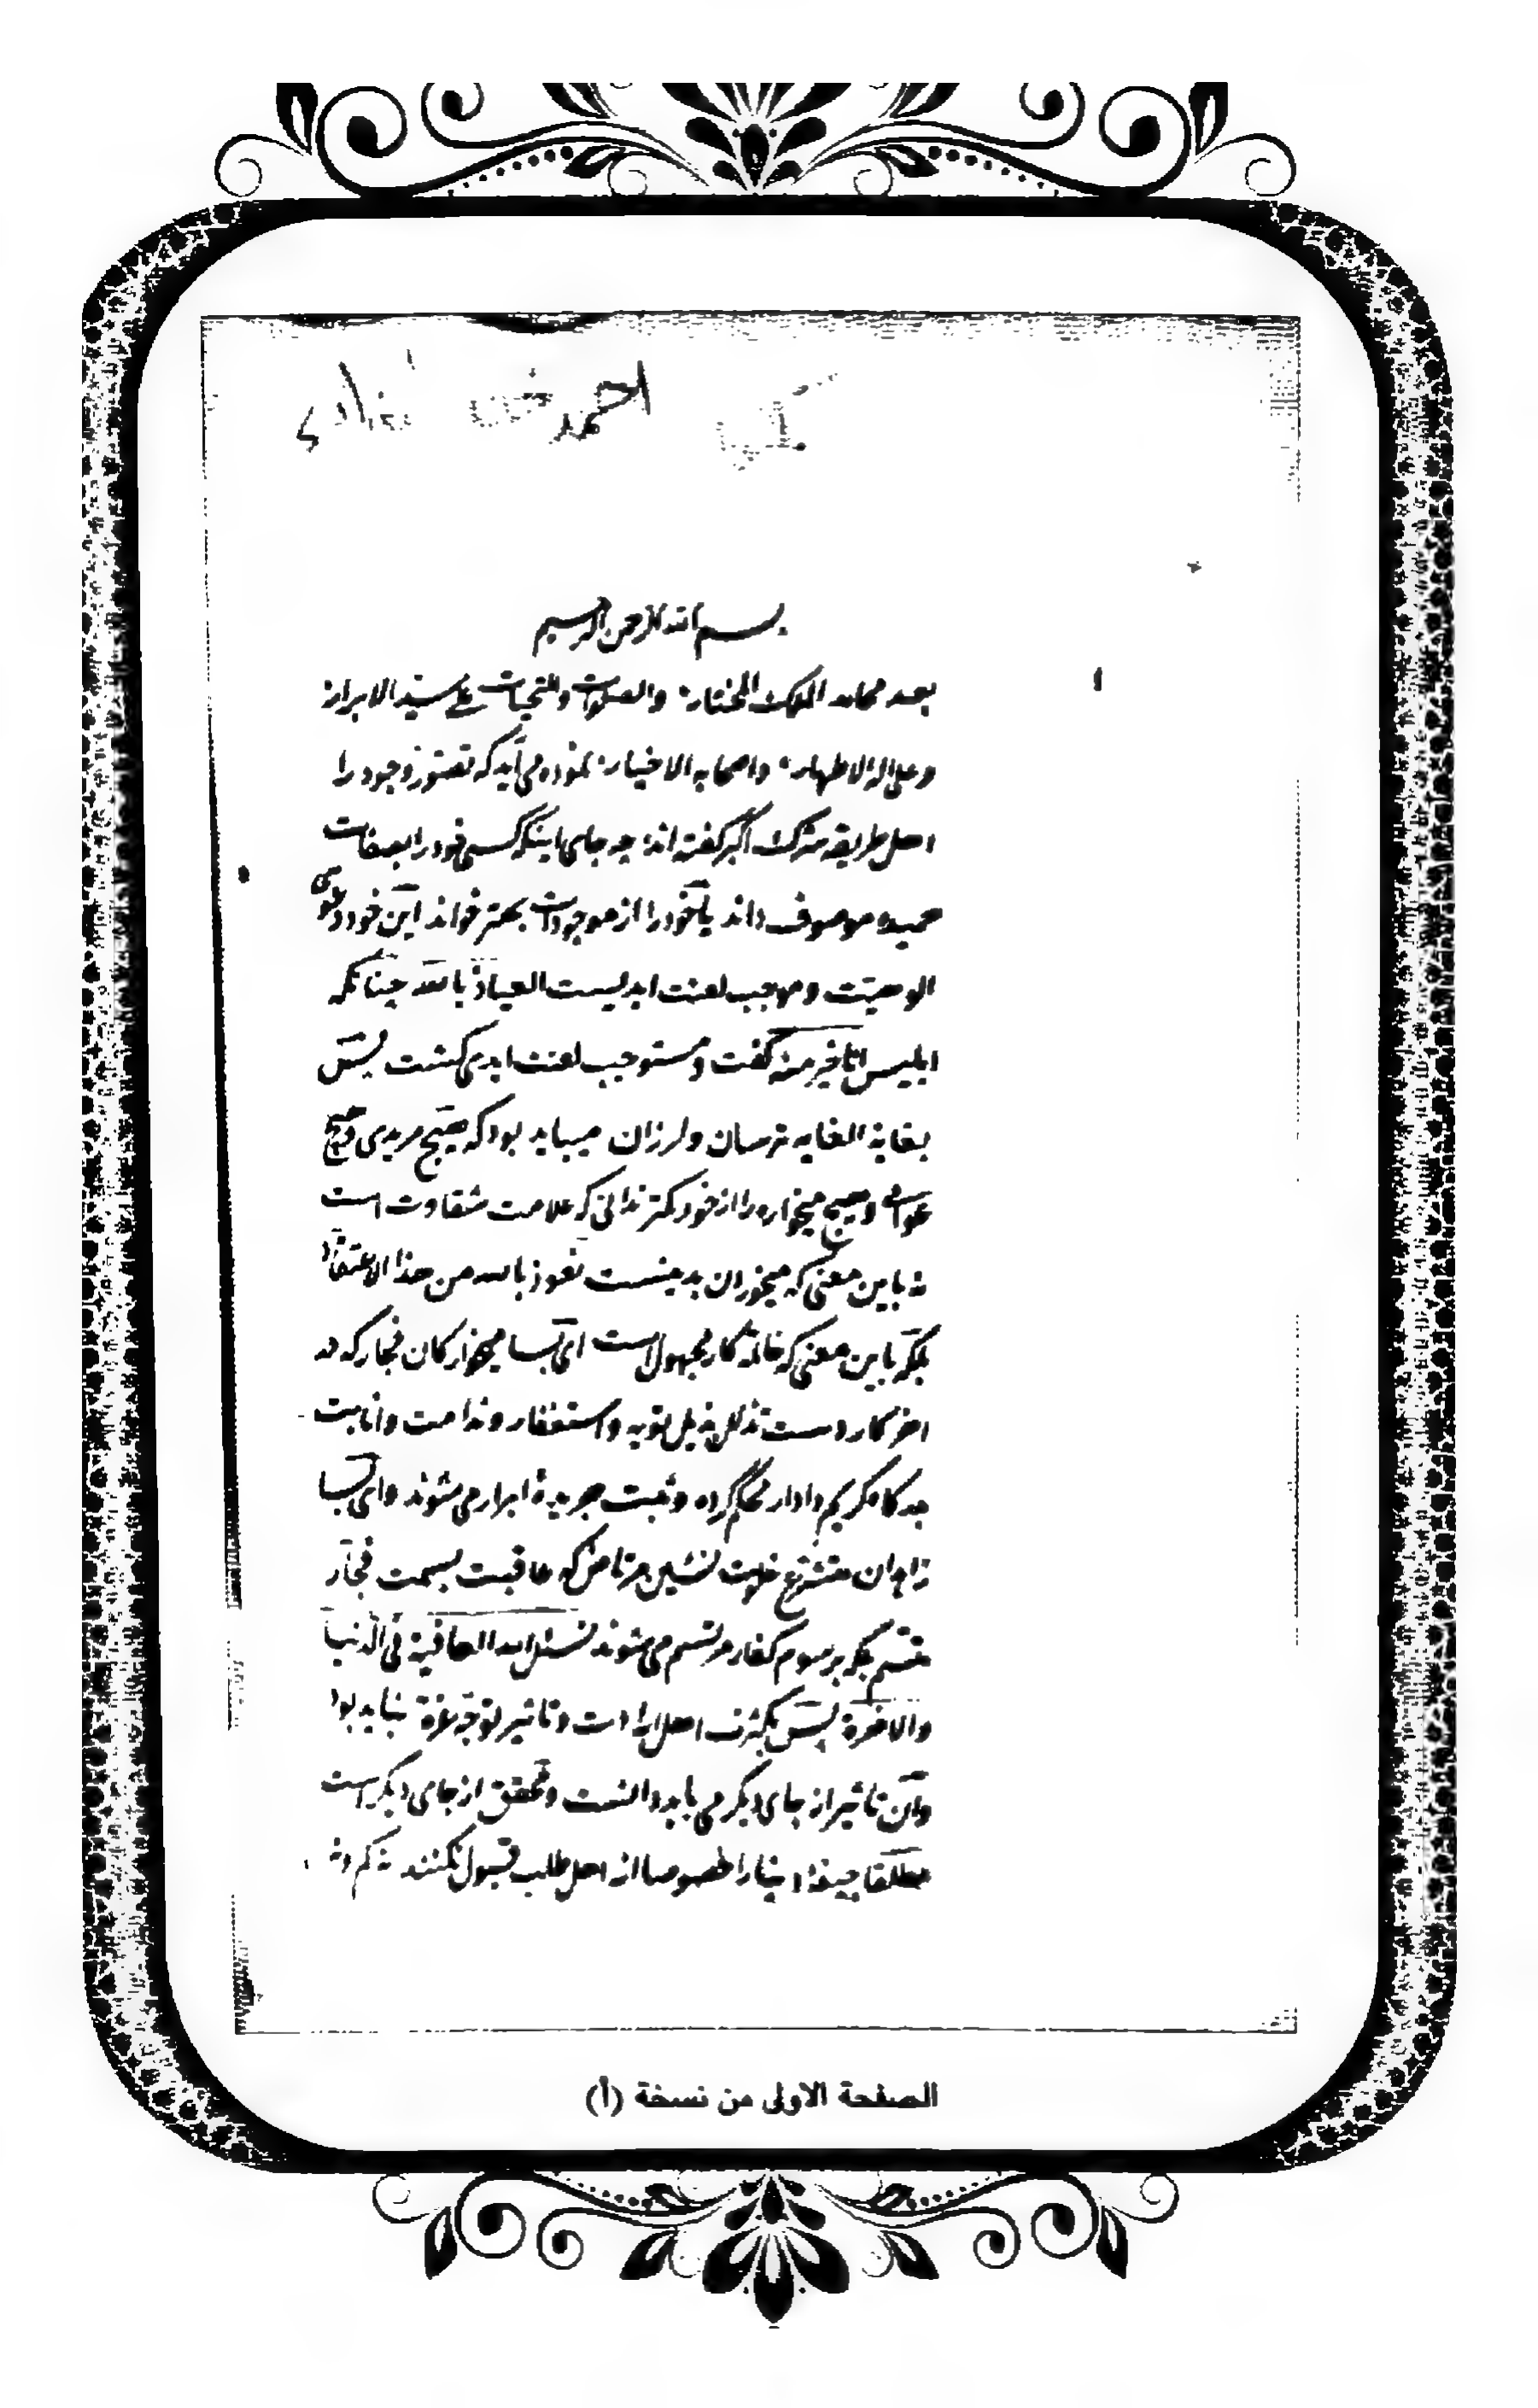 احمد
بسم الله الرحمن الرحيم
۱
بعد محامد الملك المختار والصلوات والتحيات على سيد الابرار
وعلى اله الاطهار واصحابه الاخيار نموده مى آيد كه تصور وجود را
اهل طريقه شرك اكبر گفته اند چه جاى اينكه كسى خود را بصفات
حميده موصوف داند يا خود را از موجودات بهتر خواند اين خود دعوى
الوهيت وموجب لعنت ابديست العياذ بالله چنانكه
ابليس انا خير منه گفت ومستوجب لعنت ابدى گشت پس
بغاية الغايه ترسان ولرزان ميبايد بود كه هيچ مريدى وهيچ
عوامى وهيچ ميخواره را از خود كمتر ندانى كه علامت شقاوت است
نه باين معنى كه ميخوران بد نيست نعوذ بالله من هذا الاعتقاد
بلكه باين معنى كه خاتمه كار مجهول است اى بسا ميخواركان فجار كه در
اخر كار دست تذلل بذيل توبه واستغفار وندامت وانابت
بدركاه كريم دادار محكم كرده وثبت جريدۀ ابرار مى شوند واى بسا
زاهدان متشرع خلوت نشين مرتاض كه عاقبت بسمت فجار
متسم بلكه برسوم كفار مرتسم مى شوند نسئل الله العافية فى الدنيا
والاخرة پس بكثرت اهل ارادت وتاثير توجه غره نبايد بود
وآن تاثير از جاى ديگر مى بايد دانست وتحقق از جاى ديگر است
مطلقا جيفۀ دنيا را خصوصا از اهل طلب قبول نكنند نه كم ونه
الصفحة الاولى من نسخة (أ)